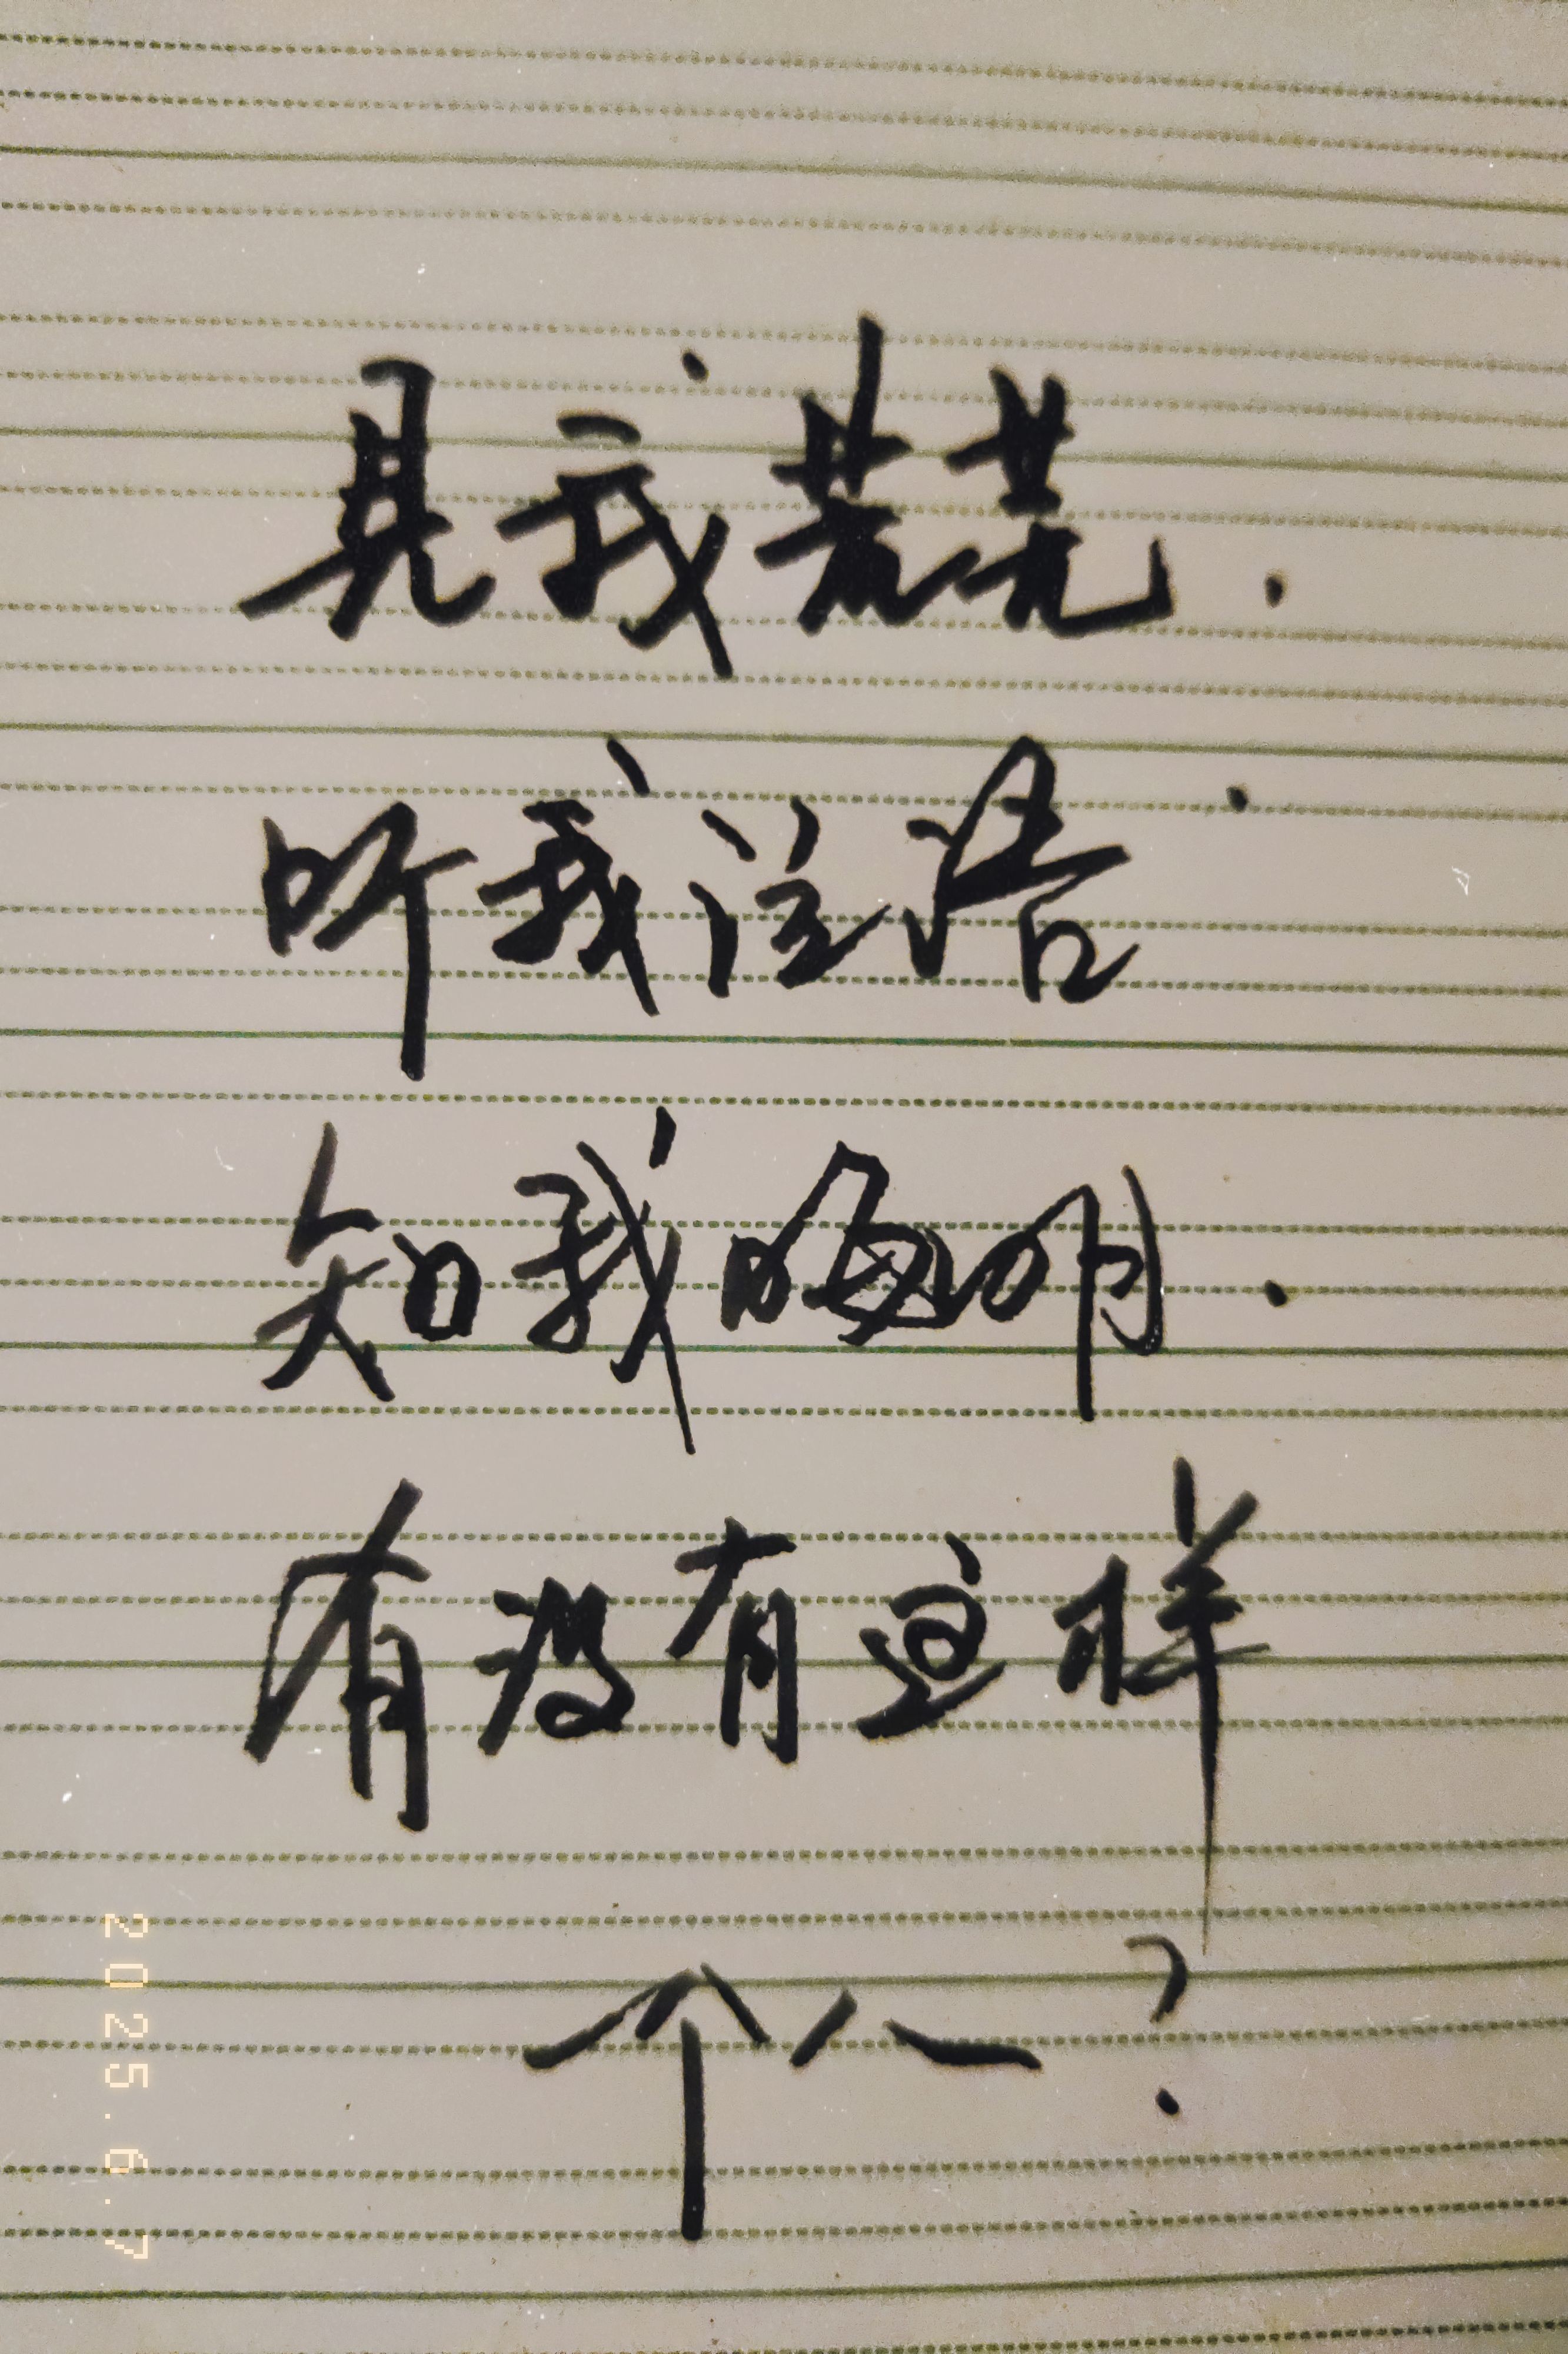 见我荒芜.
听我
知我晦明.
有没有这样
个人?
2025.6.7